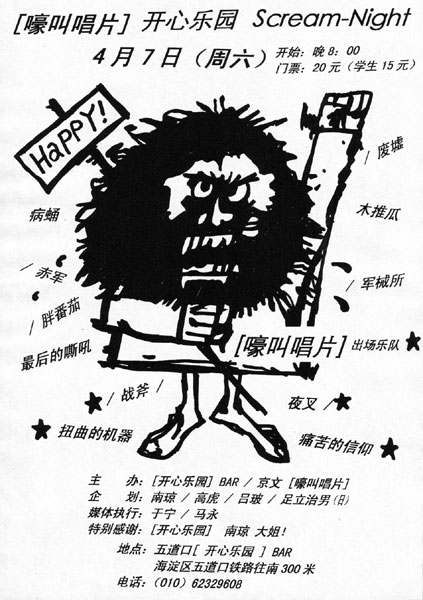 [嚎叫唱片] 开心乐园 Scream-Night
4月7日（周六）
开始：晚8：00
门票：20元（学生15元）
HaPPY!
/ 废墟
病蛹
木推瓜
/ 赤军
/ 军械所
/ 胖番茄
最后的嘶吼
[嚎叫唱片] 出场乐队 ★
★ / 战斧 /
夜叉 / ★
★ 扭曲的机器
痛苦的信仰 ★
主　办：[开心乐园] BAR / 京文 [嚎叫唱片]
企　划：南琼 / 高虎 / 吕玻 / 足立治男(日)
媒体执行：于宁 / 马永
特别感谢：[开心乐园] 南琼 大姐！
地点：五道口[ 开心乐园 ] BAR
海淀区五道口铁路往南300米
电话：(010) 62329608